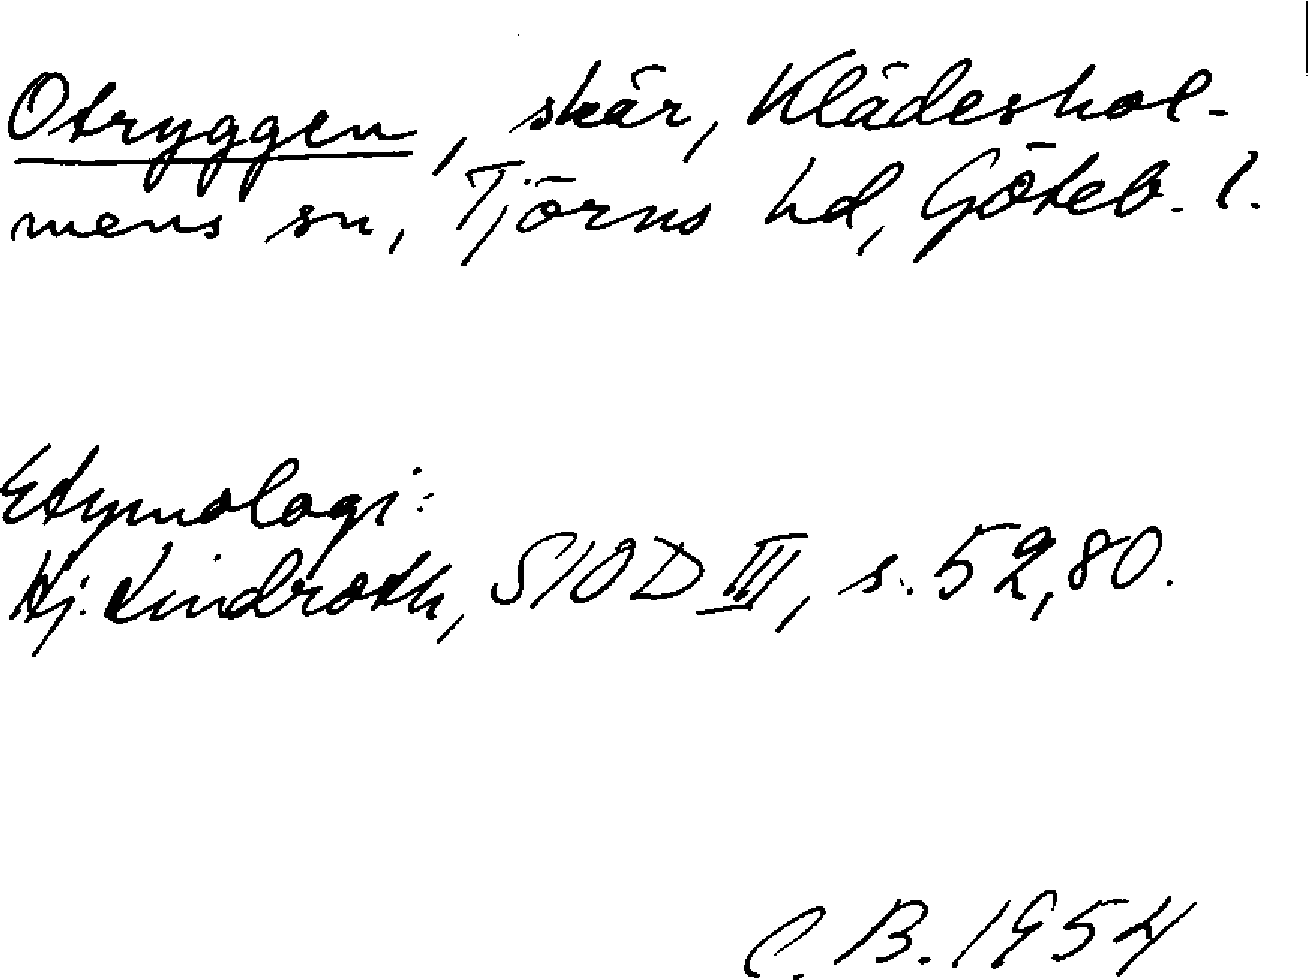 Otryggen, skär, Klädeshol-
mens sn, Tjörns hd, Göteb. l.
Etymologi:
Hj. Lindroth, SIOD III, s. 52, 80.
C. B. 1954